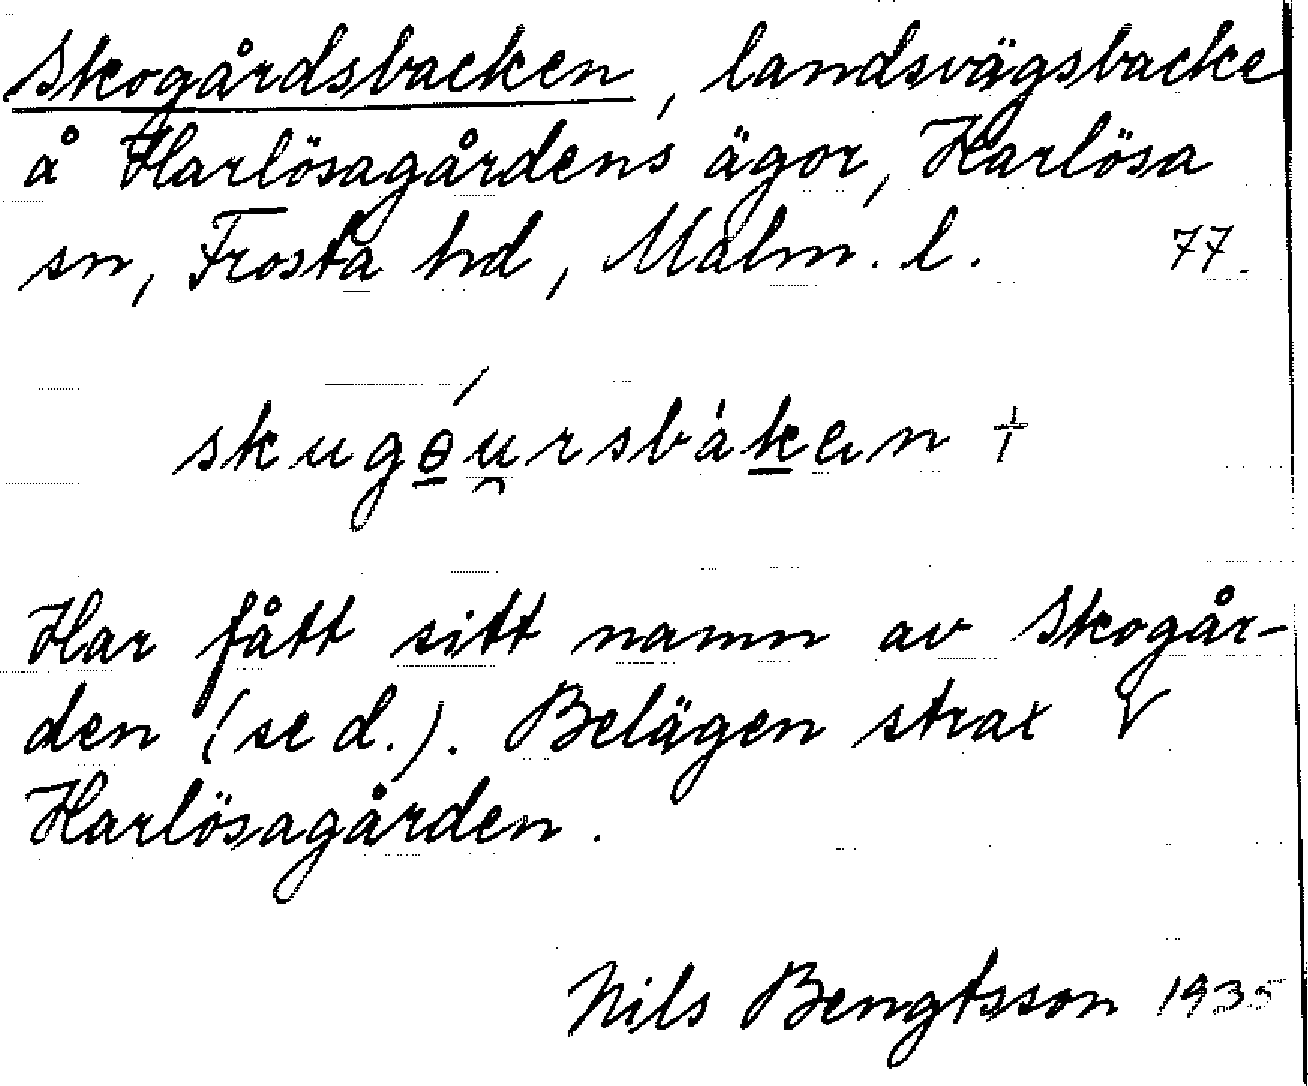 Skogårdsbacken, landsvägsbacke
å Harlösagårdens ägor, Harlösa
sn, Frosta hd, Malm. l. 77.
skugɵ́u̯rsbàkən +
Har fått sitt namn av Skogår-
den (se d.). Belägen strax V
Harlösagården.
Nils Bengtsson 1935